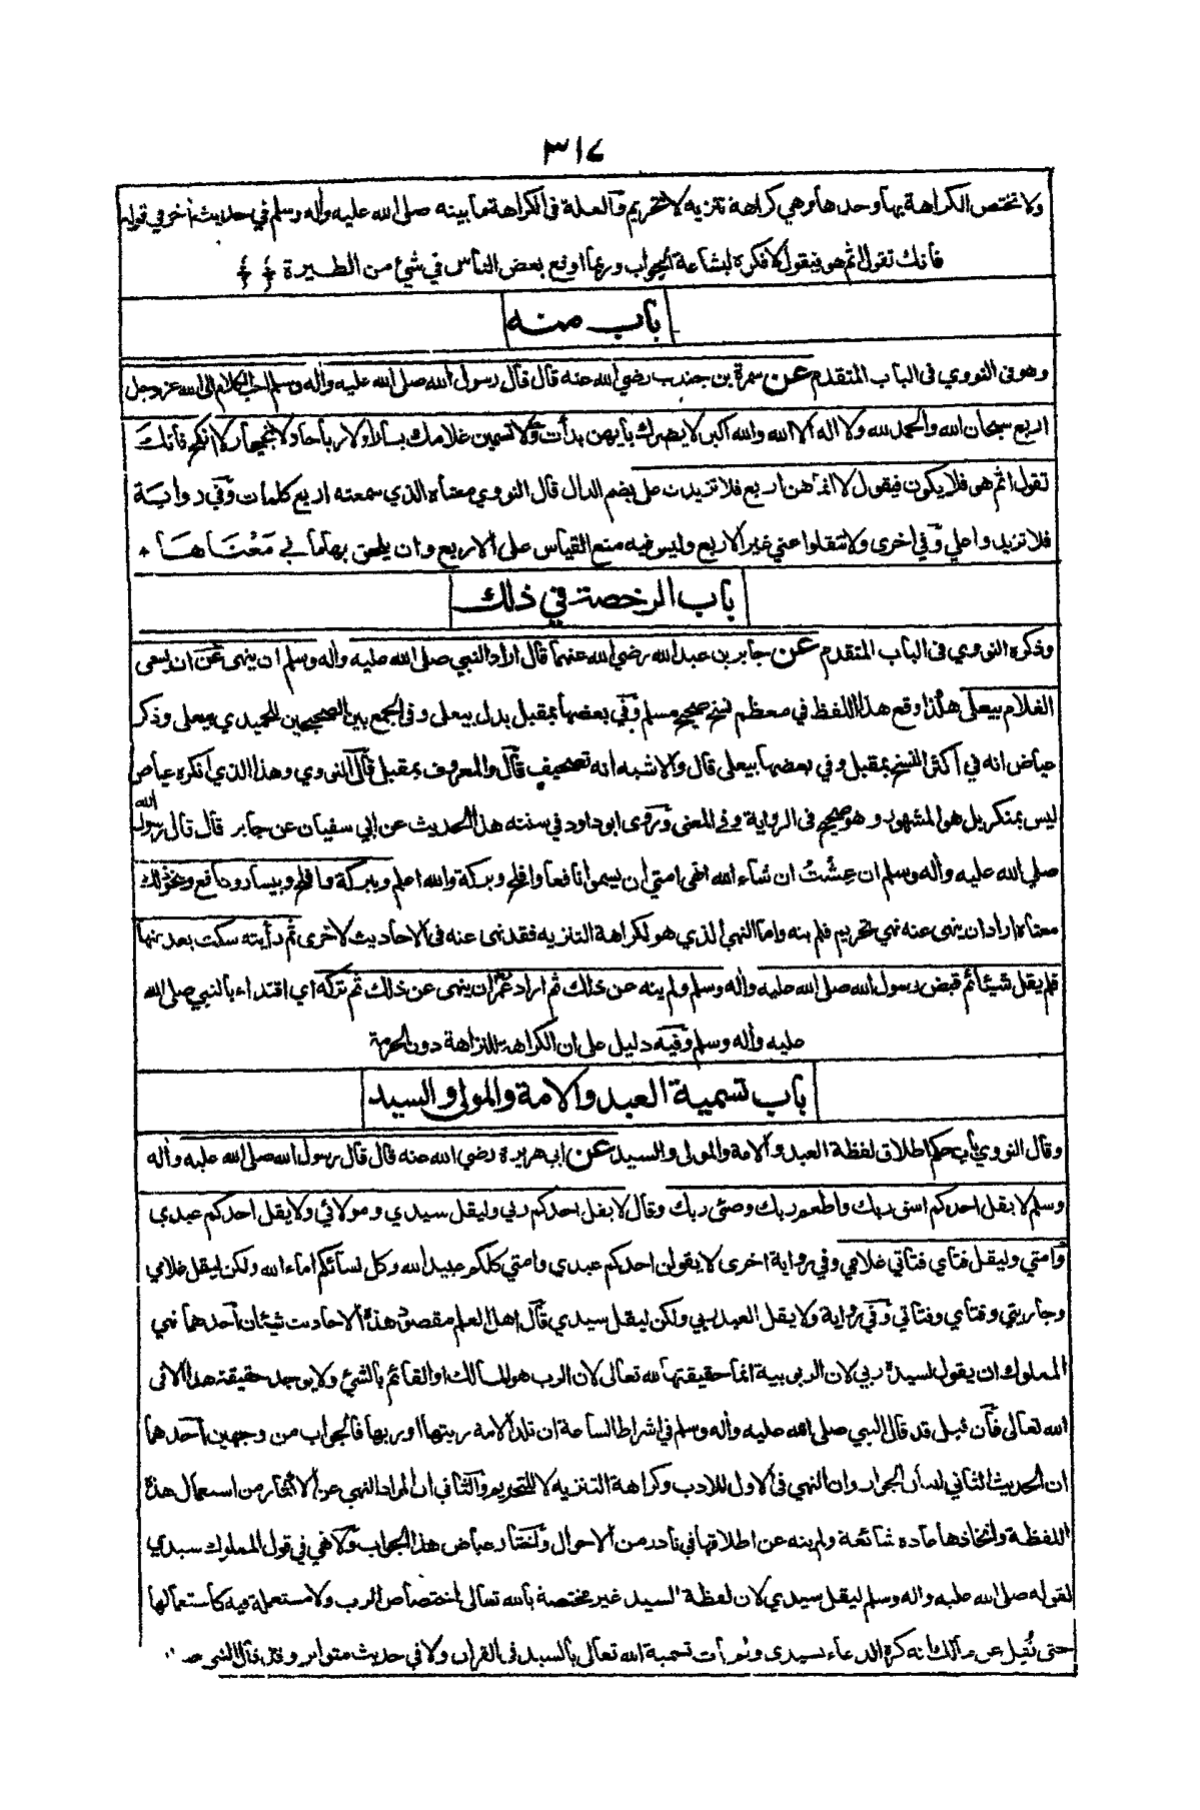 ٣١٧
ولا تختص الكراهة بها وحدها وهي كراهة تنزيه لا تحريم والعلة في الكراهة ما بينه صلى الله عليه واله وسلم في حديث اخر في قوله
فانك تقول اثم هو فيقول لا فكره لبشاعة الجواب وربما اوقع بعض الناس في شئ من الطيرة
باب منه
وهو في النووي في الباب المتقدم عن سمرة بن جندب رضي الله عنه قال قال رسول الله صلى الله عليه واله وسلم احب الكلام الى الله عز وجل
اربع سبحان الله والحمد لله ولا اله الا الله والله اكبر لا يضرك بايهن بدأت ولا تسمين غلامك يسارا ولا رباحا ولا نجيحا ولا افلح فانك
تقول اثم هو فلا يكون فيقول لا انما هن اربع فلا تزيدن علي بضم الدال قال النووي معناه الذي سمعته اربع كلمات وفي رواية
فلا تزيدوا علي وفي اخرى ولا تنقلوا عني غير الاربع وليس فيه منع القياس على الاربع وان يلحق بها ما في مَعْنَاهَا
باب الرخصة في ذلك
وذكره النووي في الباب المتقدم عن جابر بن عبد الله رضي الله عنهما قال اراد النبي صلى الله عليه واله وسلم ان ينهى عن ان يسمى
الغلام بيعلى هكذا وقع هذا اللفظ في معظم نسخ صحيح مسلم وفي بعضها بمقبل بدل بيعلى وفي الجمع بين الصحيحين للحميدي بيعلى وذكر
عياض انه في اكثر النسخ بمقبل وفي بعضها بيعلى قال والاشبه انه تصحيف قال والمعروف بمقبل قال النووي وهذا الذي انكره عياض
ليس بمنكر بل هو المشهور وهو صحيح في الرواية وفي المعنى وروى ابو داود في سننه هذا الحديث عن ابي سفيان عن جابر قال قال رسول الله
صلى الله عليه واله وسلم ان عِشْتُ ان شاء الله انهى امتي ان يسموا نافعا وافلح وبركة والله اعلم وببركة وافلح وبيسار ونافع وبنحو ذلك
معناه اراد ان ينهى عنه نهي تحريم فلم ينه واما النهي الذي هو لكراهة التنزيه فقد نهى عنه في الاحاديث الاخرى ثم رأيته سكت بعد عنها
فلم يقل شيئا ثم قبض رسول الله صلى الله عليه واله وسلم ولم ينه عن ذلك ثم اراد عمر ان ينهى عن ذلك ثم تركه اي اقتداء بالنبي صلى الله
عليه واله وسلم وفيه دليل على ان الكراهة للنزاهة دون الحرمة
باب تسمية العبد والامة والمولى والسيد
وقال النووي باب حكم اطلاق لفظة العبد والامة والمولى والسيد عن ابي هريرة رضي الله عنه قال قال رسول الله صلى الله عليه واله
وسلم لا يقل احدكم اسق ربك واطعم ربك وضئ ربك وقال لا يقل احدكم ربي وليقل سيدي ومولائي ولا يقل احدكم عبدي
وامتي وليقل فتاي فتاتي غلامي وفي رواية اخرى لا يقولن احدكم عبدي وامتي كلكم عبيد الله وكل نسائكم اماء الله ولكن ليقل غلامي
وجاريتي وفتاي وفتاتي وفي رواية ولا يقل العبد ربي ولكن ليقل سيدي قال اهل العلم مقصود هذه الاحاديث شيئان احدهما نهي
المملوك ان يقول لسيده ربي لان الربوبية انما حقيقتها لله تعالى لان الرب هو المالك او القائم بالشئ ولا يوجد حقيقة هذا الا في
الله تعالى فان قيل قد قال النبي صلى الله عليه واله وسلم في اشراط الساعة ان تلد الامة ربتها او ربها فالجواب من وجهين احدهما
ان الحديث الثاني لبيان الجواز وان النهي في الاول للادب وكراهة التنزيه لا للتحريم والثاني ان المراد النهي عن الاكثار من استعمال هذه
اللفظة واتخاذها عادة شائعة ولم ينه عن اطلاقها في نادر من الاحوال واختار عياض هذا الجواب ولا نهي في قول المملوك سيدي
لقوله صلى الله عليه واله وسلم ليقل سيدي لان لفظة السيد غير مختصة بالله تعالى اختصاص الرب ولا مستعملة فيه كاستعمالها
حتى نقل عن مالك انه كره الدعاء بسيدي ولم يأت تسمية الله تعالى بالسيد في القران ولا في حديث متواتر وقد قال النبي صـ